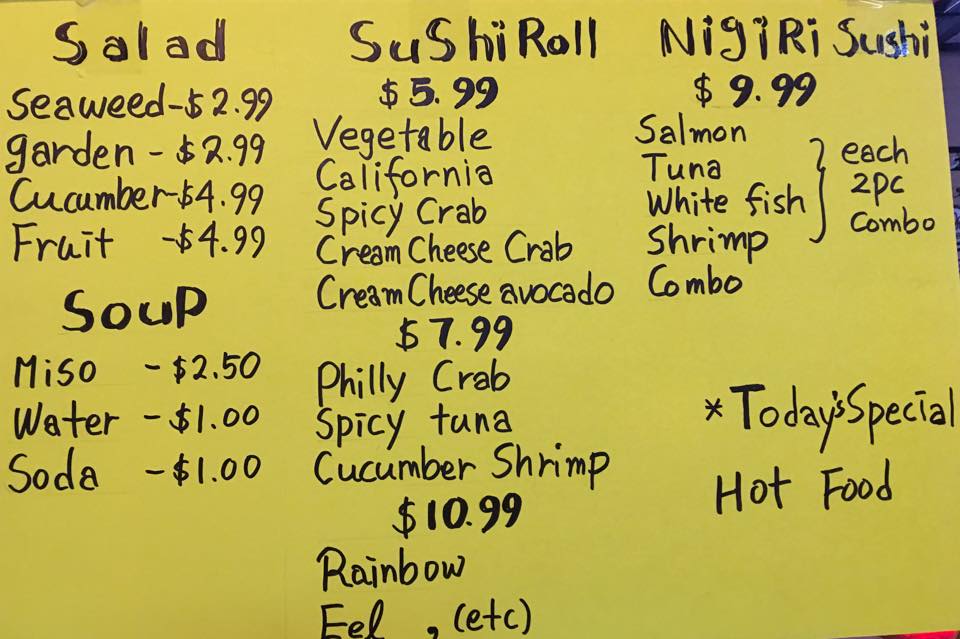 Salad
Seaweed-$2.99
garden - $2.99
Cucumber-$4.99
Fruit -$4.99
Soup
Miso - $2.50
Water - $1.00
Soda - $1.00
SuShi Roll
$5.99
Vegetable
California
Spicy Crab
Cream Cheese Crab
Cream Cheese avocado
$7.99
Philly Crab
Spicy tuna
Cucumber Shrimp
$10.99
Rainbow
Eel , (etc)
NigiRi Sushi
$9.99
Salmon
Tuna
White fish
Shrimp
Combo
each
2pc
Combo
*Today's Special
Hot Food